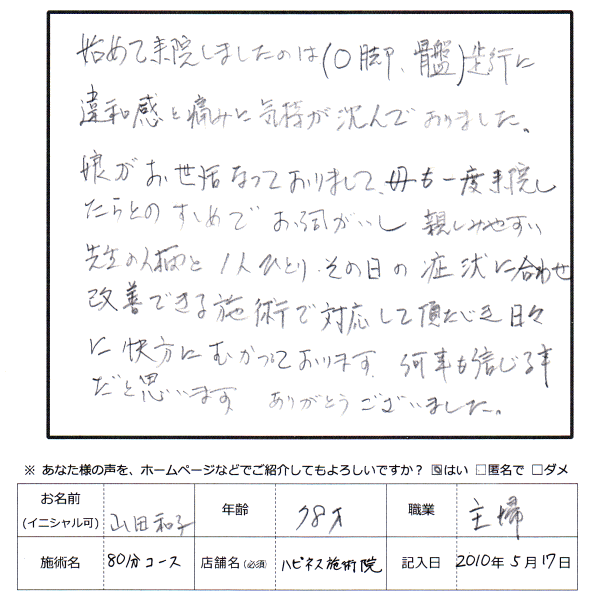 始めて来院しましたのは(O脚、骨盤)歩行に
違和感と痛みに気持が沈んでおりました。
娘がお世話なっておりまして、母も一度来院し
たらとのすすめでお伺がいし 親しみやすい
先生の人柄と 1人ひとり、その日の症状に合わせ
改善できる施術で対応して頂だき日々
に快方にむかっております。何事も信じる事
だと思います。ありがとうございました。
※ あなた様の声を、ホームページなどでご紹介してもよろしいですか? ☑はい □匿名で □ダメ
お名前 (イニシャル可) 山田和子 年齢 78才 職業 主婦
施術名 80分コース 店舗名(必須) ハピネス施術院 記入日 2010年5月17日